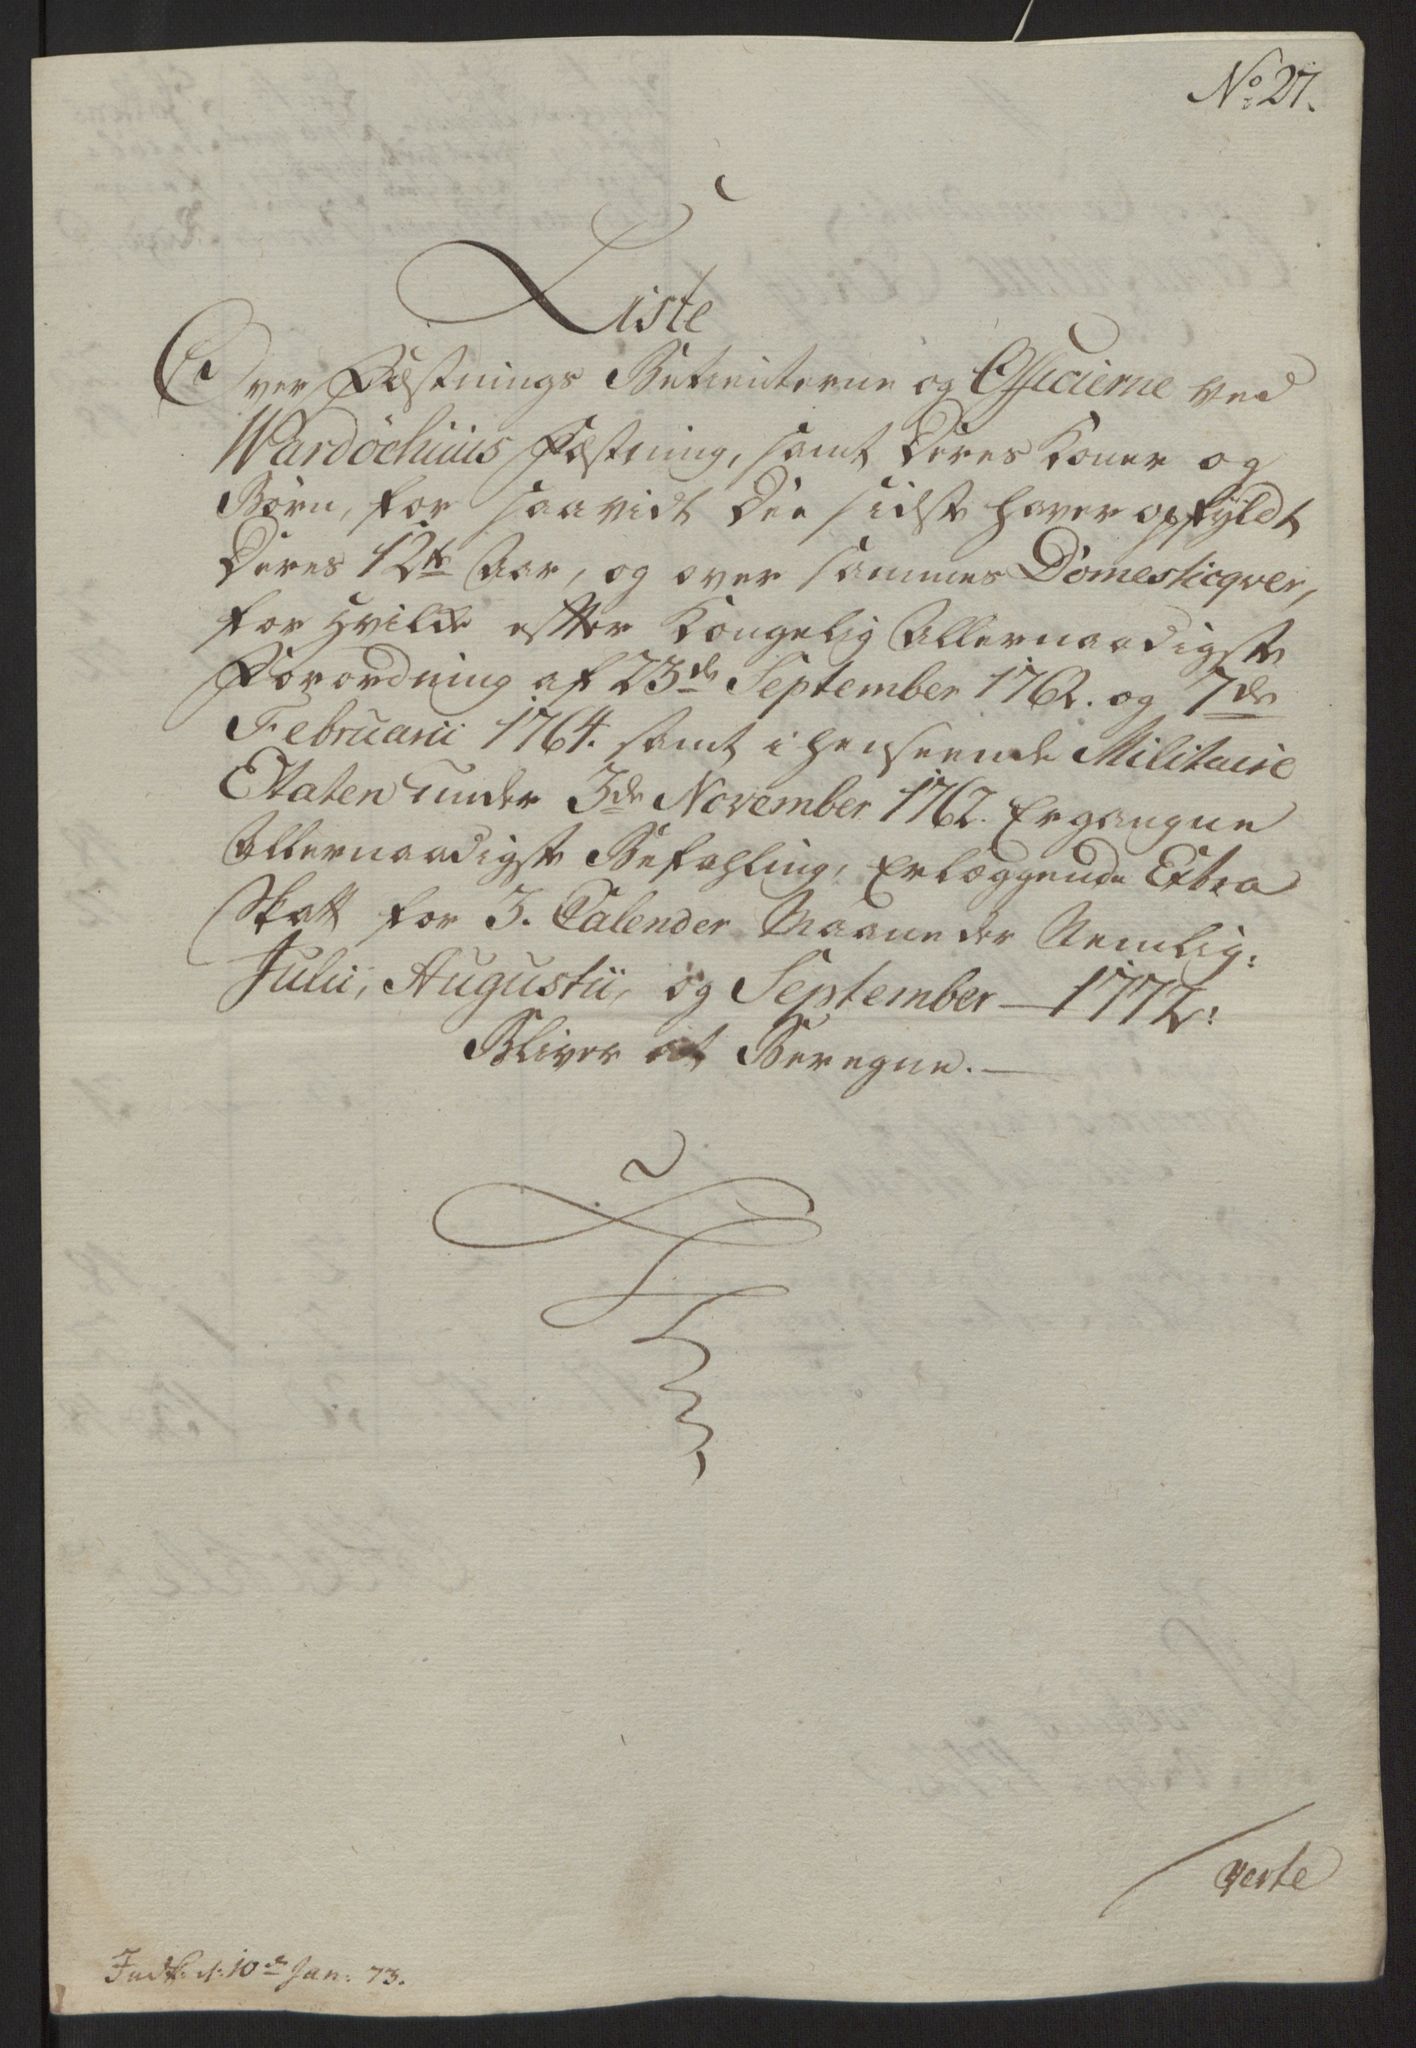 No: 27.
Liste
Over Fæstnings Betienterne og Officierne ved
Wardöehuus Fæstning, samt deres Koner og
Börn, for saavidt dee sidste haver opfyldt
deres 12te Aar, og over sammes Domesticqver,
for hvilke efter Kongelig Allernaadigste
Forordning af 23de September 1762. og 7de
Februarii 1764. samt i henseende Militaire
Etaten under 3de November 1762. Ergangne
Allernaadigste Befahling, Erlæggende Extra
Skatt for 3. Calender Maaneder Nemlig:
Julii, Augustii, og September 1772:
Bliver at Beregne.
verte
Indk: d: 10de Jan: 73.